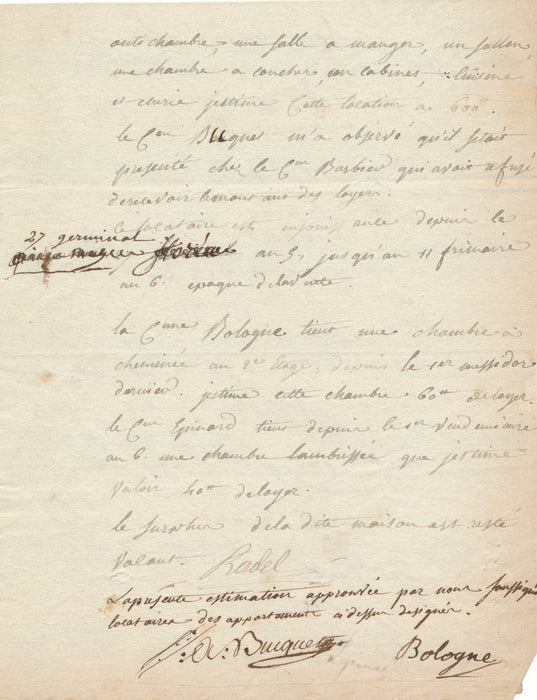 antichambre, une salle a manger, un sallon,
une chambre a coucher, un cabinet, cuisine
et ecurie jestime cette location a 600ᵗᵗ
le Cen Bucquet m'a observé qu'il setait
presenté chez le Cen Barbier qui avait refusé
de recevoir le montant des loyers.
ce locataire est en jouissance depuis le
27 germinal
an 5, jusqu'au 11 frimaire
au 6. epoque de la vente.
la Cenne Bologne tient une chambre à
cheminée au 2e Etage, depuis le 1er messidor
dernier. jestime cette chambre 60ᵗᵗ de loyer.
le Cen Epinard tient depuis le 1er Vendemiaire
an 6. une chambre lambrissée que jestime
valoir 40ᵗᵗ de loyer.
le surplus de la dite maison est resté
vacant. Radel
La presente estimation approuvée par nous soussignés
locataires des appartements ci dessus designés.
Bucquet Bologne